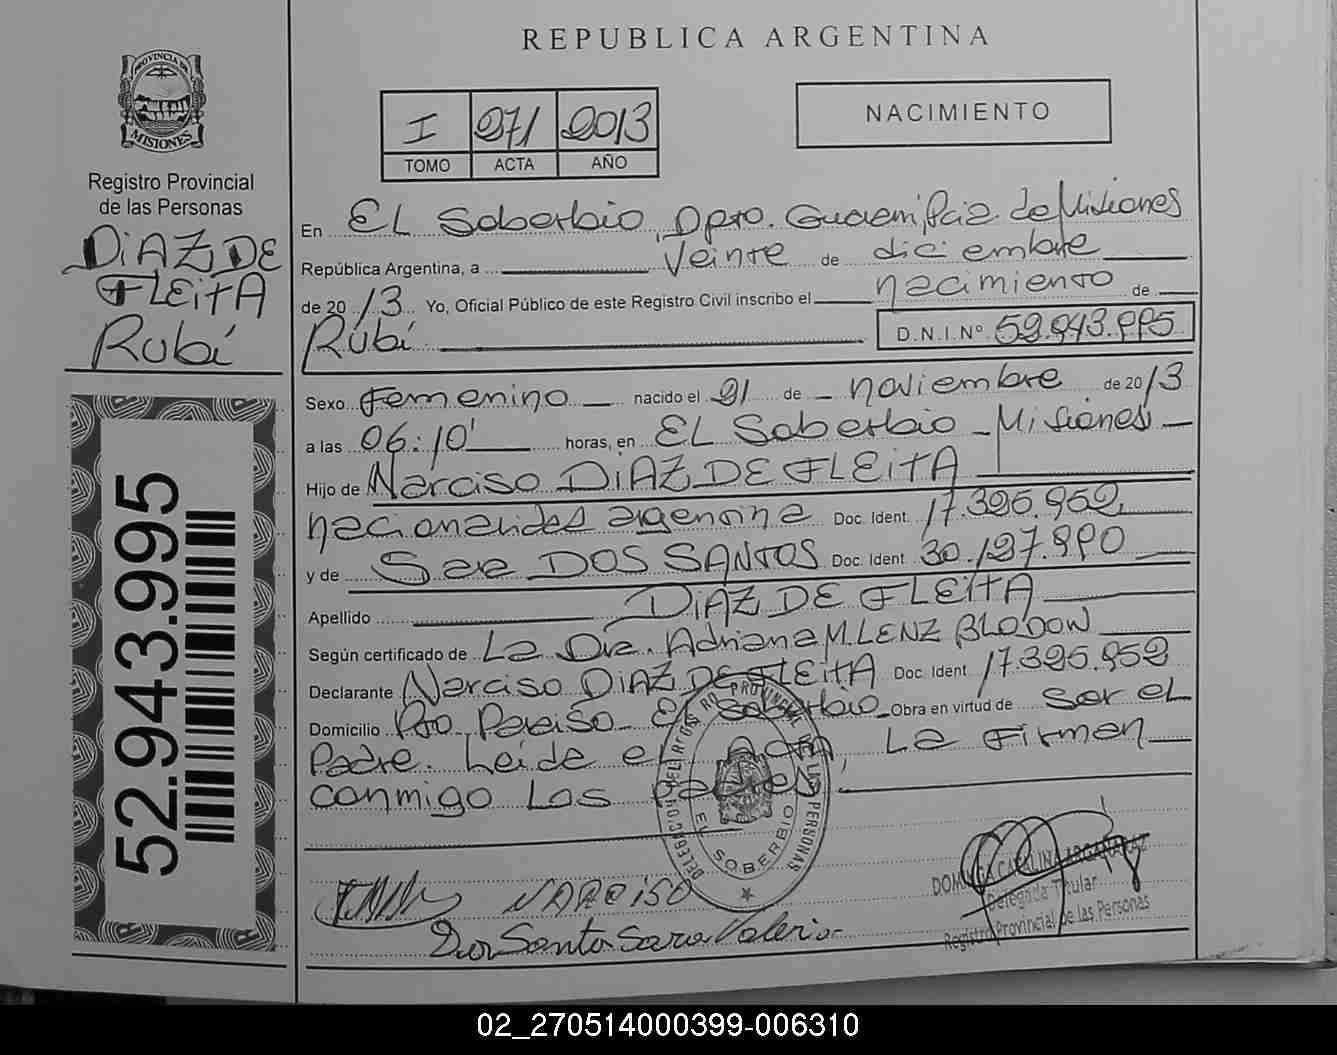 REPUBLICA ARGENTINA
PROVINCIA DE
MISIONES
Registro Provincial
de las Personas
DiAZ DE
FLEITA
Rubí
52.943.995
I 271 2013
TOMO ACTA AÑO
NACIMIENTO
En EL Soberbio, Dpto. Guarani, Pcia. de Misiones
República Argentina, a Veinte de diciembre
de 2013 Yo, Oficial Público de este Registro Civil inscribo el nacimiento de
Rubí D.N.I.Nº 52.943.995
Sexo Femenino nacido el 21 de noviembre de 2013
a las 06:10' horas, en EL Soberbio - Misiones
Hijo de Narciso DiAZ DE FLEITA
nacionalidad argentina Doc. Ident. 17.325.952
y de Sara DOS SANTOS Doc. Ident. 30.127.990
Apellido DiAZ DE FLEITA
Según certificado de La Dra. Adriana M. LENZ BLODON
Declarante Narciso DiAZ DE FLEITA Doc. Ident. 17.325.952
Domicilio Pto Paraiso - El Soberbio Obra en virtud de ser el
Padre. Leida el acta, La Firman
conmigo Los padres
DELEG. DEL REGISTRO PROVINCIAL DE LAS PERSONAS
EL SOBERBIO
NARCiSO
Dos Santo Sara Valeria
DOMINGA CATALINA ARGAÑARAZ
Delegada Titular
Registro Provincial de las Personas
02_270514000399-006310